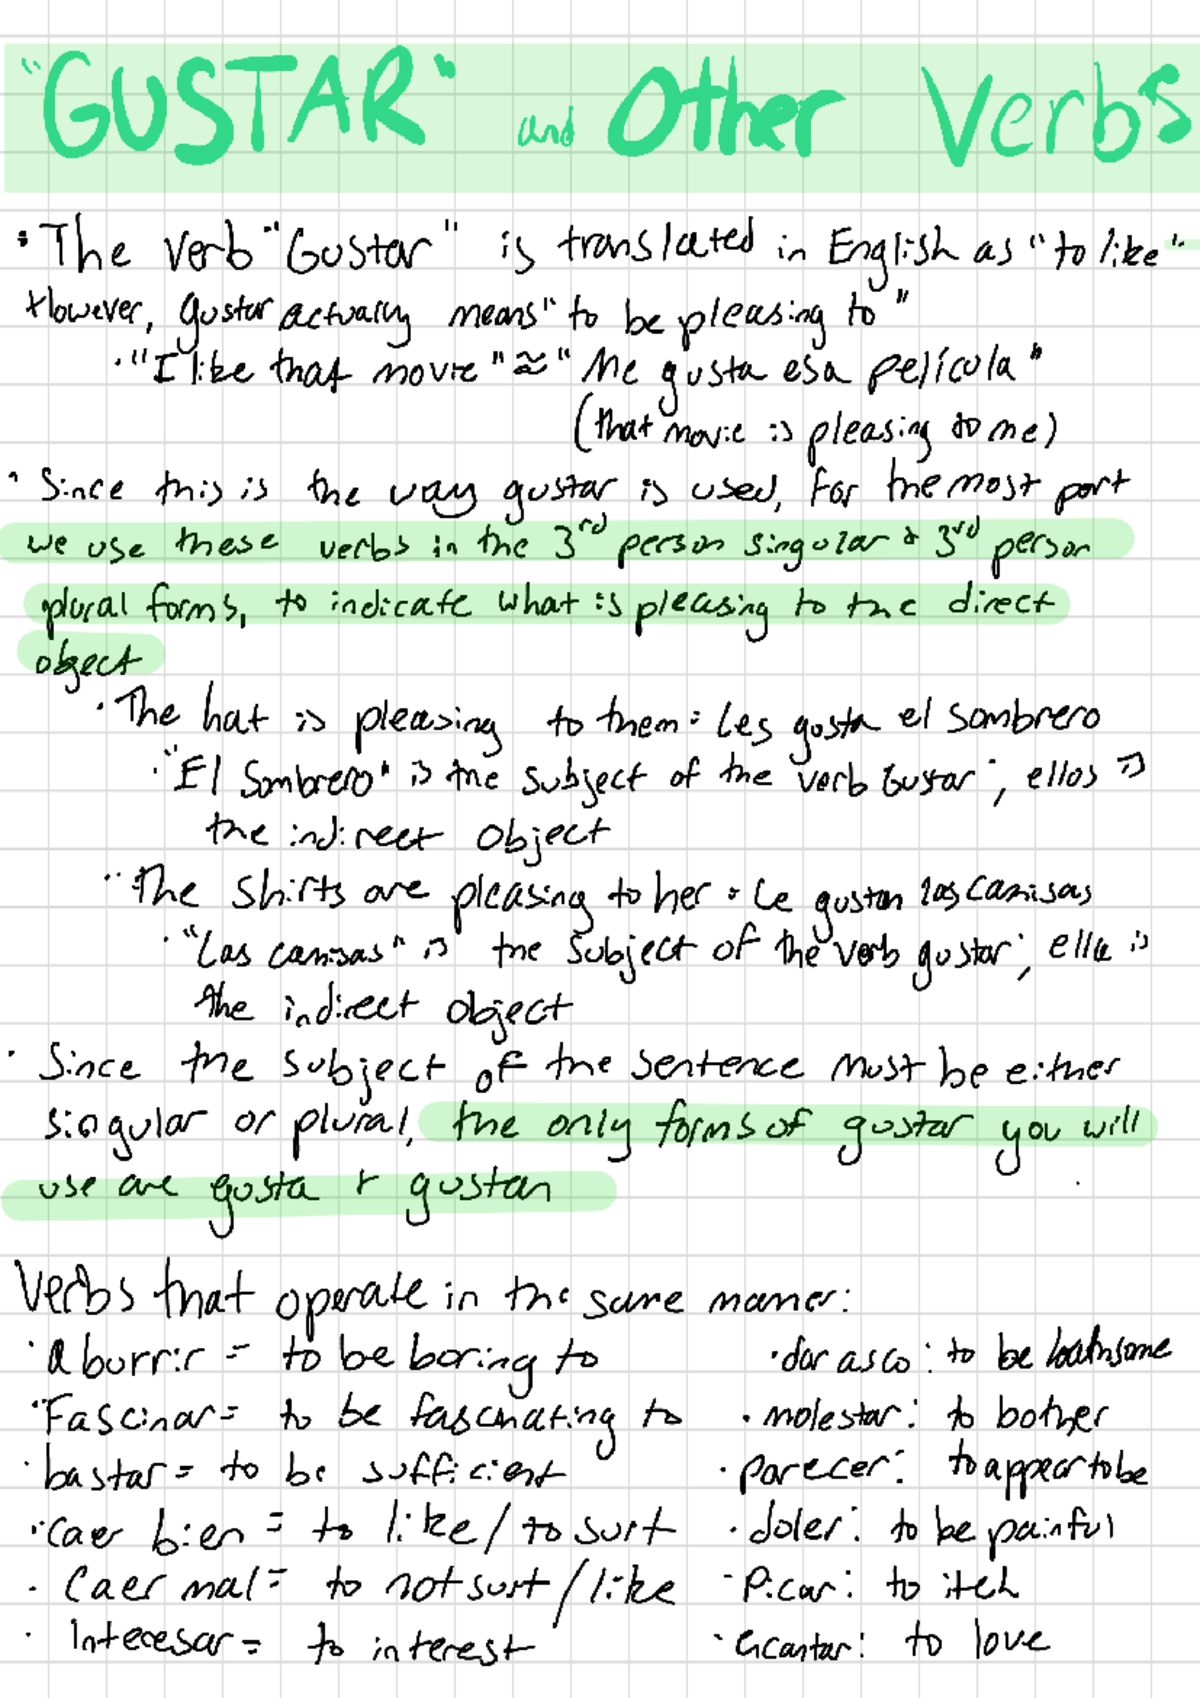 "GUSTAR" and Other Verbs
• The verb "Gustar" is translated in English as "to like"
However, gustar actually means "to be pleasing to"
• "I like that movie" ≈ "Me gusta esa película"
(that movie is pleasing to me)
• Since this is the way gustar is used, for the most part
we use these verbs in the 3rd person singular & 3rd person
plural forms, to indicate what is pleasing to the direct
object
• The hat is pleasing to them = Les gusta el sombrero
• "El Sombrero" is the subject of the verb Gustar; ellos is
the indirect object
• The shirts are pleasing to her = Le gustan las camisas
• "Las camisas" is the subject of the verb gustar; ella is
the indirect object
• Since the subject of the sentence must be either
singular or plural, the only forms of gustar you will
use are gusta & gustan
Verbs that operate in the same manner:
• aburrir = to be boring to
• Fascinar = to be fascinating to
• bastar = to be sufficient
• caer bien = to like / to suit
• Caer mal = to not suit / like
• Interesar = to interest
• dar asco: to be loathsome
• molestar: to bother
• parecer: to appear to be
• doler: to be painful
• Picar: to itch
• encantar: to love